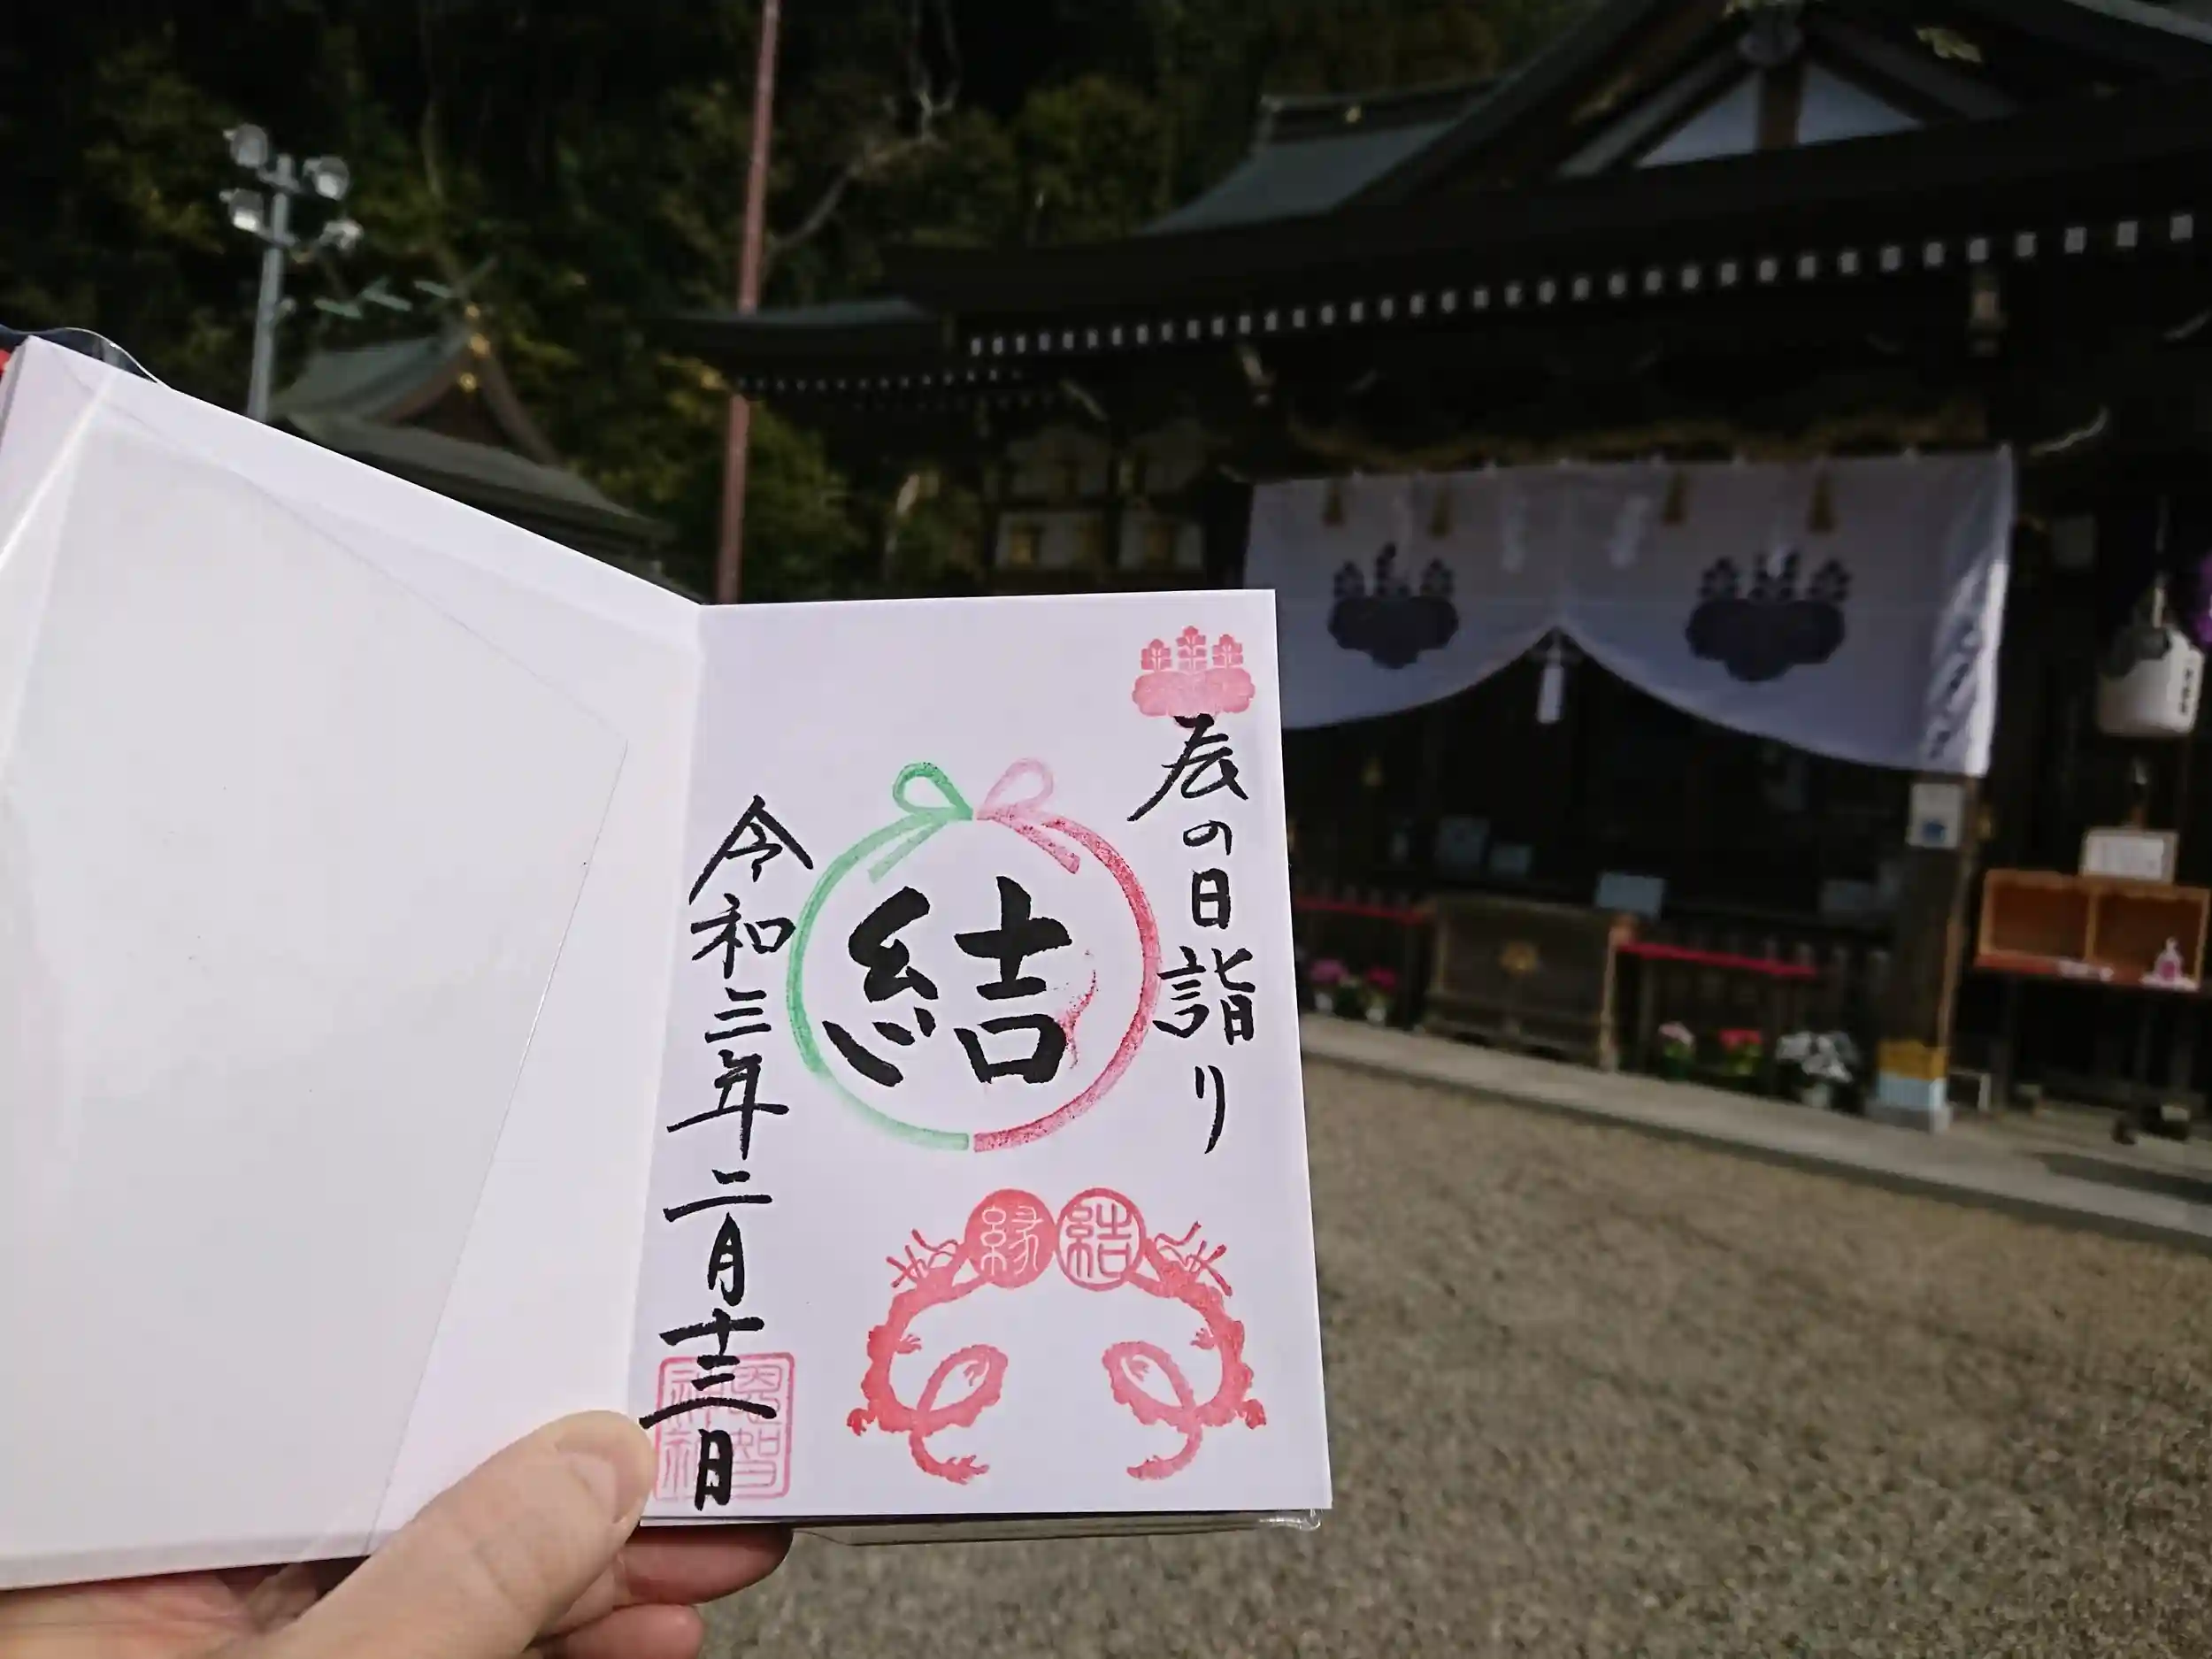 辰の日詣り
結
縁結
令和三年二月十三日
恩智神社